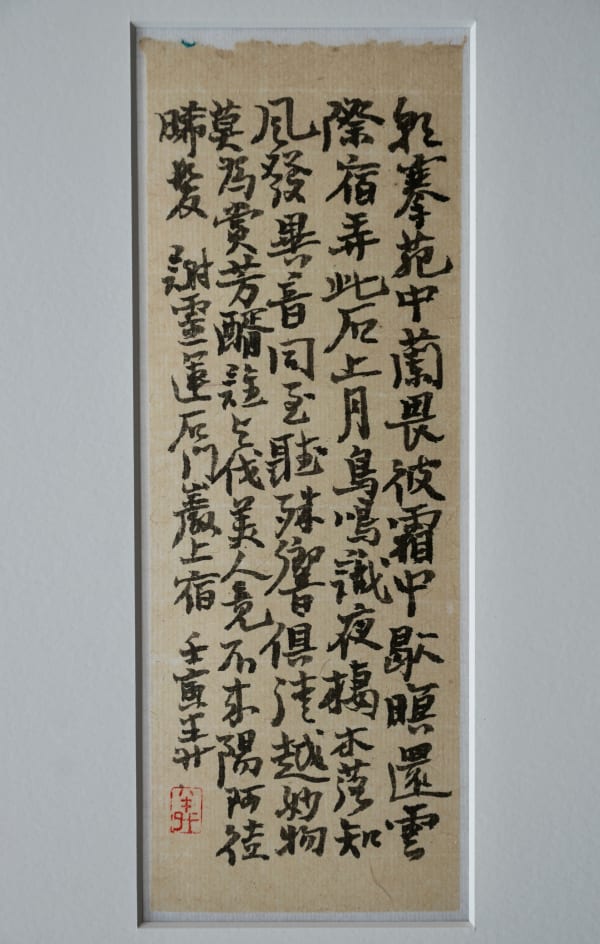 朝搴苑中蘭畏彼霜中歇暝還雲
際宿弄此石上月鳥鳴識夜棲木落知
風發異音同至聽殊響俱清越妙物
莫為賞芳醑誰与伐美人竟不來陽阿徒
晞髮 謝靈運石門巖上宿 壬寅